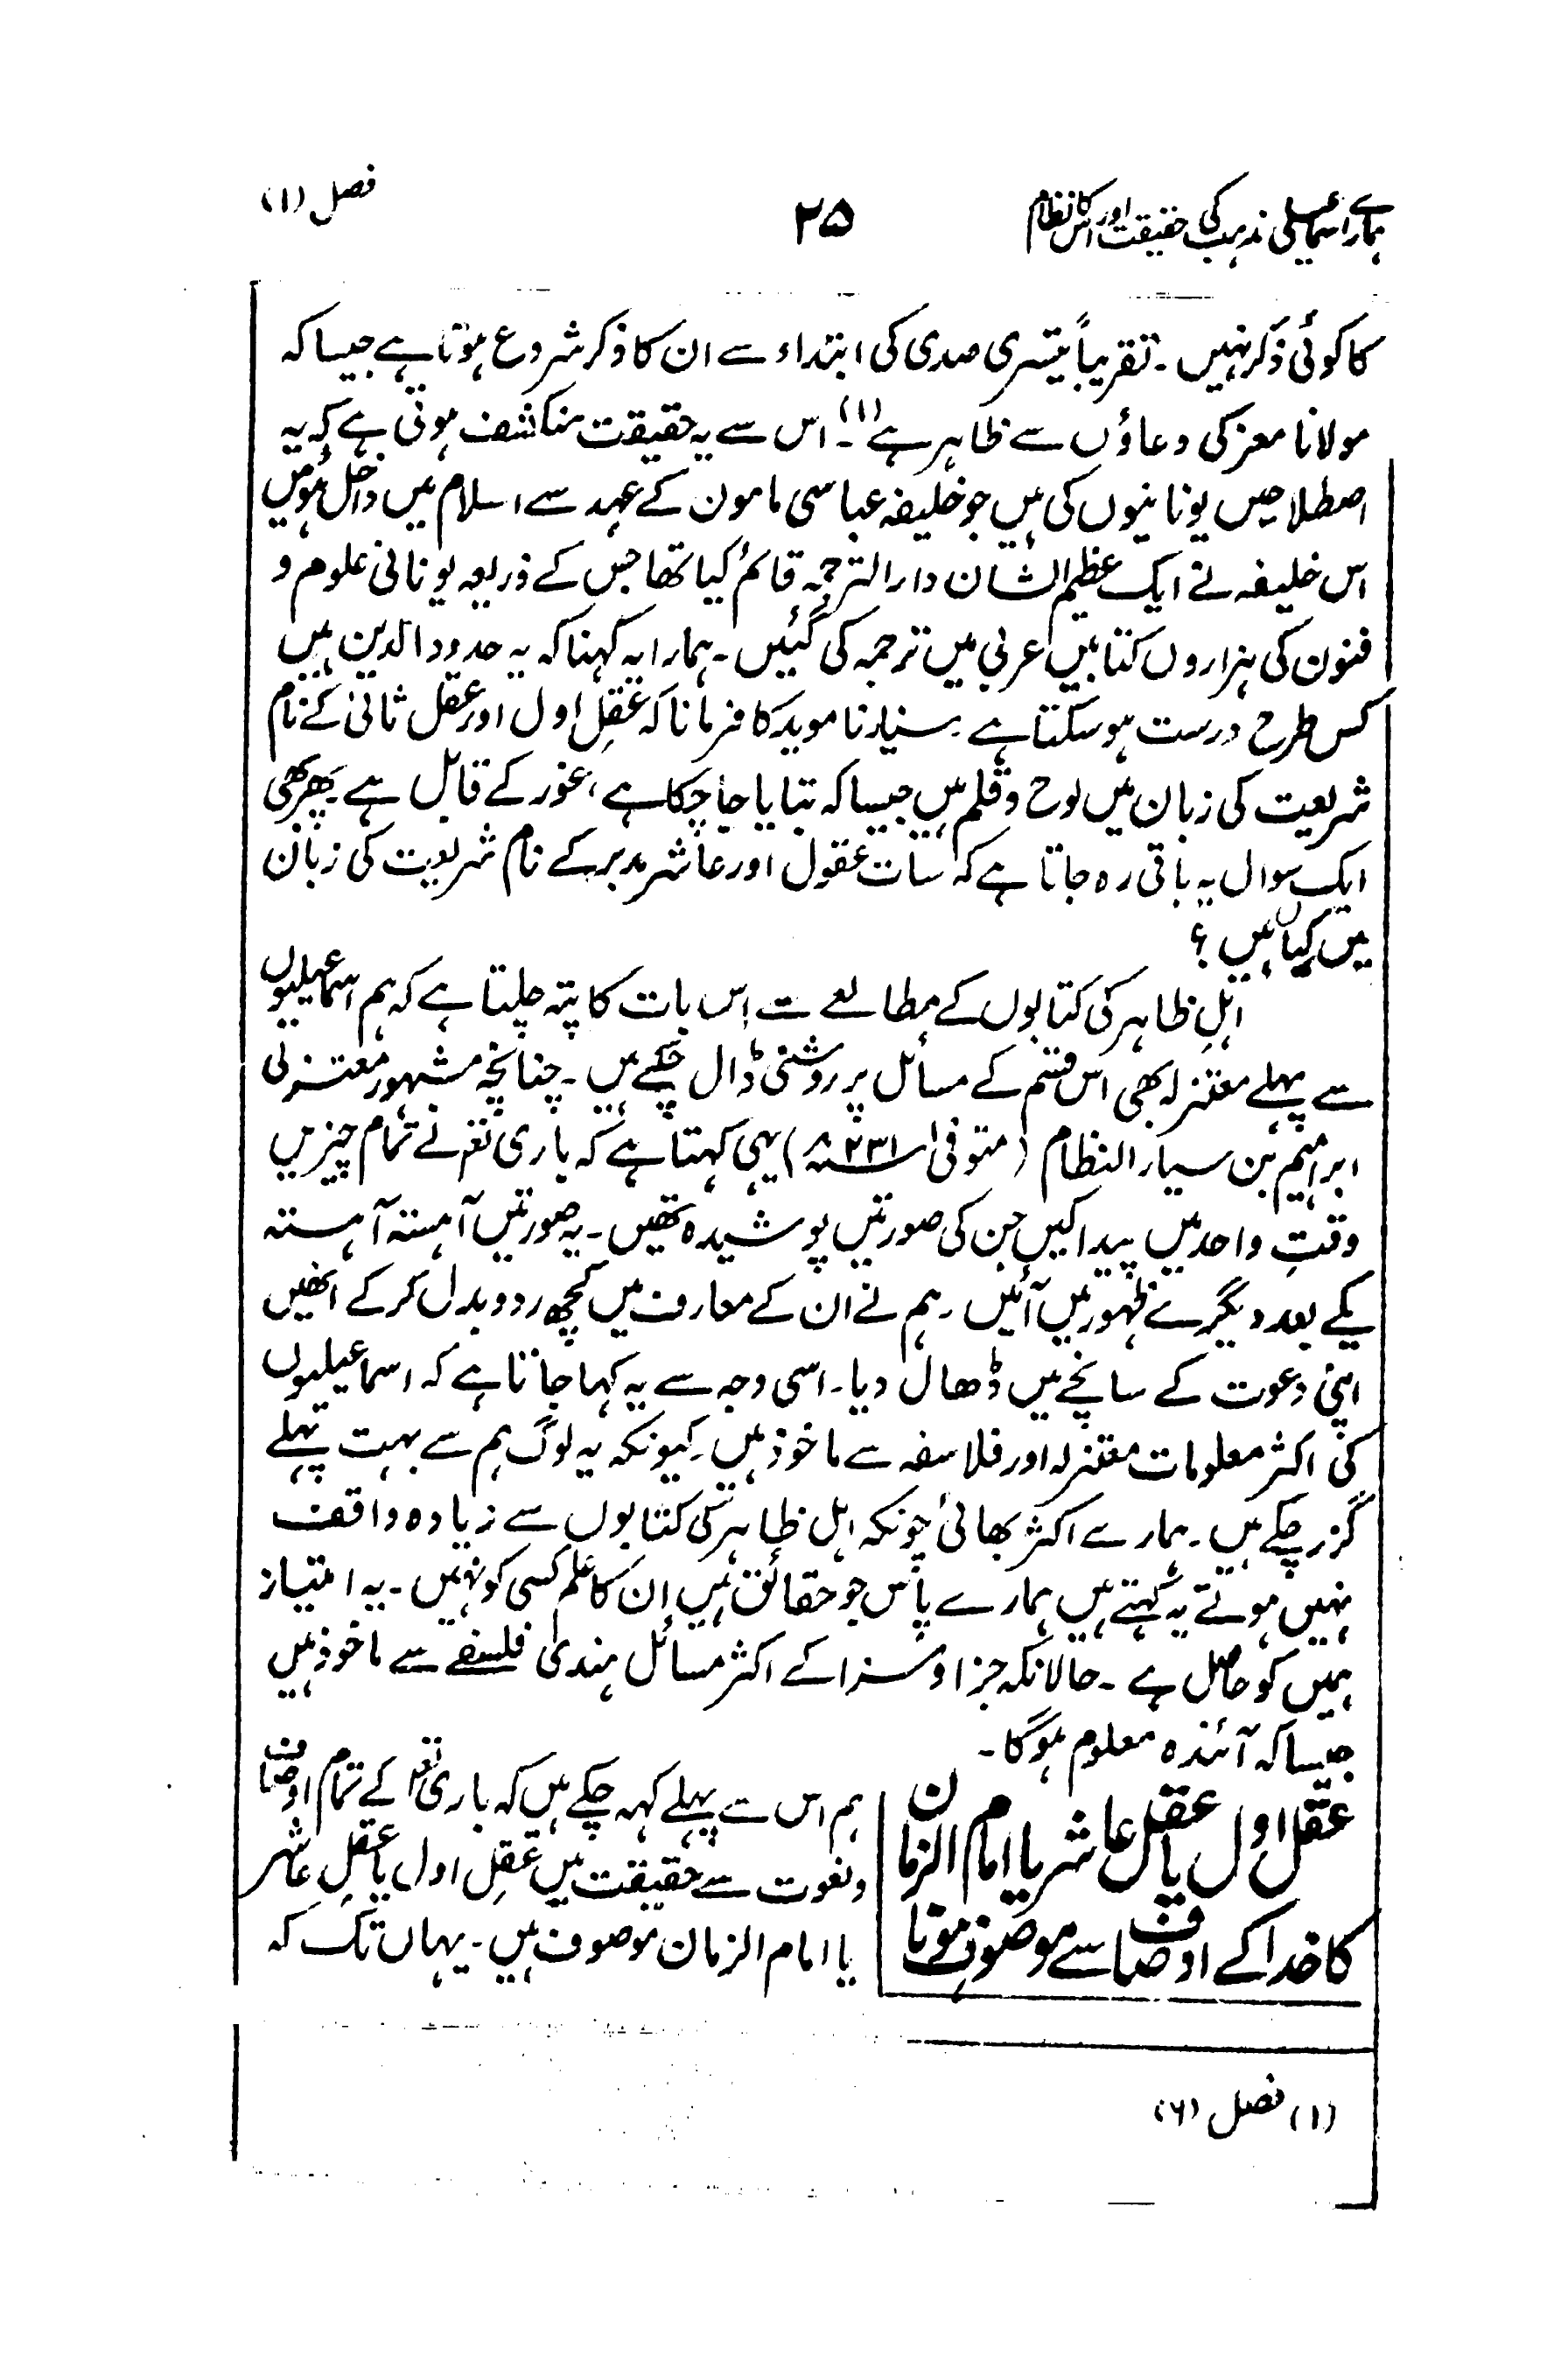 ہمارے اسماعیلی مذہب کی حقیقت اور اس کا نظام
۲۵
فصل (۱)
کا کوئی ذکر نہیں ۔ تقریباً تیسری صدی کی ابتداء سے ان کا ذکر شروع ہوتا ہے جیسا کہ
مولانا معز کی دعاؤں سے ظاہر ہے (۱)۔ اس سے یہ حقیقت منکشف ہوتی ہے کہ یہ
اصطلاحیں یونانیوں کی ہیں جو خلیفہ عباسی مامون کے عہد سے اسلام میں داخل ہوئیں
اس خلیفہ نے ایک عظیم الشان دار الترجمہ قائم کیا تھا جس کے ذریعہ یونانی علوم و
فنون کی ہزاروں کتابیں عربی میں ترجمہ کی گئیں ۔ ہمارا یہ کہنا کہ یہ حدود الدین ہیں
کس طرح درست ہو سکتا ہے ۔ سیدنا موید کا فرمانا کہ عقلِ اول اور عقل ثانی کے نام
شریعت کی زبان میں لوح و قلم ہیں جیسا کہ بتایا جا چکا ہے ، غور کے قابل ہے ۔ پھر بھی
ایک سوال یہ باقی رہ جاتا ہے کہ سات عقول اور عاشر مدبر کے نام شریعت کی زبان
میں کیا ہیں ؟
اہلِ ظاہر کی کتابوں کے مطالعے سے اس بات کا پتہ چلتا ہے کہ ہم اسماعیلیوں
سے پہلے معتزلہ بھی اس قسم کے مسائل پر روشنی ڈال چکے ہیں ۔ چنانچہ مشہور معتزلی
ابراہیم بن سیار النظام (متوفی ۲۳۱ھ) یہی کہتا ہے کہ باری تعم نے تمام چیزیں
وقتِ واحد میں پیدا کیں جن کی صورتیں پوشیدہ تھیں ۔ یہ صورتیں آہستہ آہستہ
یکے بعد دیگرے ظہور میں آئیں ۔ ہم نے ان کے معارف میں کچھ ردو بدل کر کے انھیں
اپنی دعوت کے سانچے میں ڈھال دیا ۔ اسی وجہ سے یہ کہا جاتا ہے کہ اسماعیلیوں
کی اکثر معلومات معتزلہ اور فلاسفہ سے ماخوذ ہیں ۔ کیونکہ یہ لوگ ہم سے بہت پہلے
گزر چکے ہیں ۔ ہمارے اکثر بھائی چونکہ اہل ظاہر کی کتابوں سے زیادہ واقف
نہیں ہوتے یہ کہتے ہیں ہمارے پاس جو حقائق ہیں ان کا علم کسی کو نہیں ۔ یہ امتیاز
ہمیں کو حاصل ہے ۔ حالانکہ جزا و سزا کے اکثر مسائل ہندی فلسفے سے ماخوذ ہیں
جیسا کہ آئندہ معلوم ہوگا ۔
عقل اول یا عقل عاشر یا امام الزمان
کا خدا کے اوصاف سے موصوف ہونا
ہم اس سے پہلے کہہ چکے ہیں کہ باری تعم کے تمام اوصاف
ونعوت سے حقیقت میں عقلِ اول یا عقلِ عاشر
یا امام الزمان موصوف ہیں ۔ یہاں تک کہ
(۱) فصل (۶)